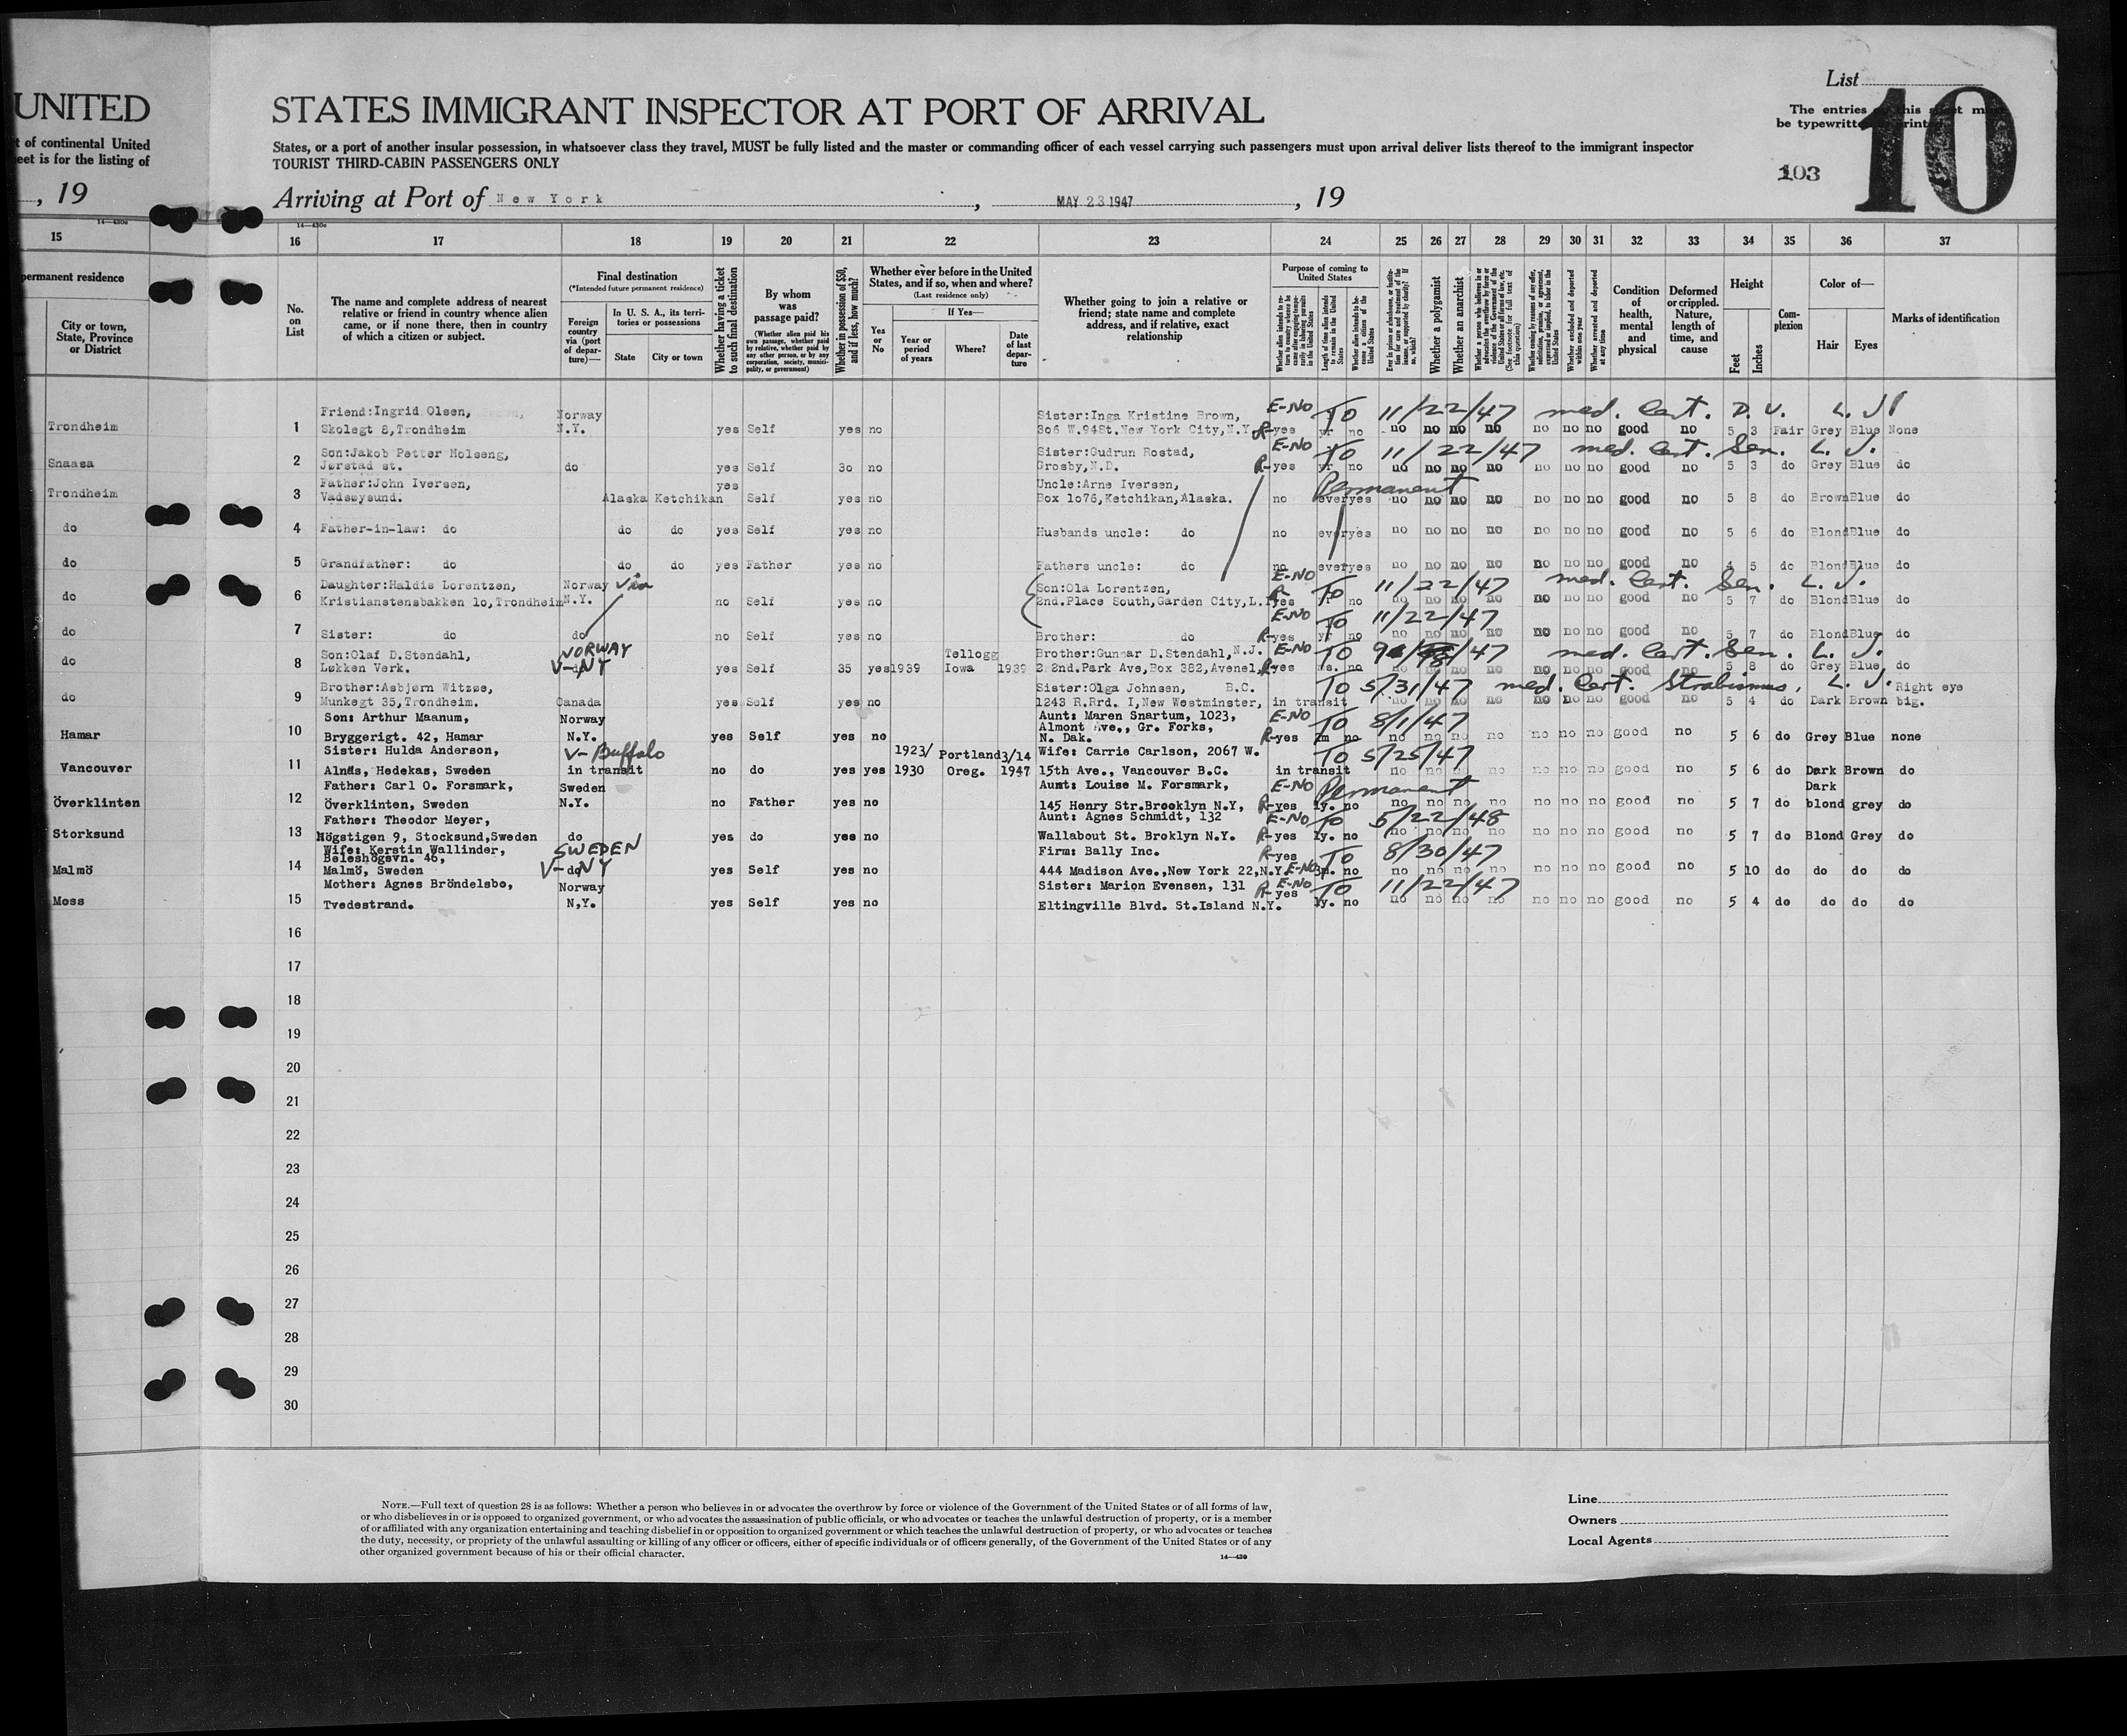 UNITED
t of continental United
eet is for the listing of
, 19
14—430c
15
permanent residence
City or town,
State, Province
or District
Trondheim
Snaasa
Trondheim
do
do
do
do
do
do
Hamar
Vancouver
Överklinten
Storksund
Malmö
Moss
List
STATES IMMIGRANT INSPECTOR AT PORT OF ARRIVAL
The entries this sheet
be typewritten
10
States, or a port of another insular possession, in whatsoever class they travel, MUST be fully listed and the master or commanding officer of each vessel carrying such passengers must upon arrival deliver lists thereof to the immigrant inspector
TOURIST THIRD-CABIN PASSENGERS ONLY
103
Arriving at Port of New York, MAY 23 1947, 19
14—430c
16 17 18 19 20 21 22 23 24 25 26 27 28 29 30 31 32 33 34 35 36 37
No. on List
The name and complete address of nearest relative or friend in country whence alien came, or if none there, then in country of which a citizen or subject.
Final destination
(*Intended future permanent residence)
Foreign country via (port of departure)—
In U. S. A., its territories or possessions
State City or town
Whether having a ticket to such final destination
By whom was passage paid?
(Whether alien paid his own passage, whether paid by relative, whether paid by any other person, or by any corporation, society, municipality, or government)
Whether in possession of $50, and if less, how much?
Whether ever before in the United States, and if so, when and where?
(Last residence only)
Yes or No
If Yes—
Year or period of years
Where?
Date of last departure
Whether going to join a relative or friend; state name and complete address, and if relative, exact relationship
Purpose of coming to United States
Whether alien intends to return to country whence he came after engaging temporarily in laboring pursuits in the United States
Length of time alien intends to remain in the United States
Whether alien intends to become a citizen of the United States
Ever in prison or almshouse, or institution for care and treatment of the insane, or supported by charity? If so, which?
Whether a polygamist
Whether an anarchist
Whether a person who believes in or advocates the overthrow by force or violence of the Government of the United States or all forms of law, etc. (See footnote for full text of this question)
Whether coming by reasons of any offer, solicitation, promise, or agreement, expressed or implied, to labor in the United States
Whether excluded and deported within one year
Whether arrested and deported at any time
Condition of health, mental and physical
Deformed or crippled. Nature, length of time, and cause
Height
Feet Inches
Complexion
Color of—
Hair Eyes
Marks of identification
Friend:Ingrid Olsen, Norway Sister:Inga Kristine Brown, E-NO TO 11/22/47 med. Cert. D. V. L. J.
1 Skolegt 8,Trondheim N.Y. yes Self yes no 306 W.94St.New York City,N.Y R-yes yr no no no no no no no no good no 5 3 Fair Grey Blue None
Son:Jakob Petter Holseng, Sister:Gudrun Rostad, E-NO TO 11/22/47 med. Cert. Sen. L. J.
2 Jørstad st. do yes Self 3o no Crosby,N.D. R-yes yr no no no no no no no no good no 5 3 do Grey Blue do
Father:John Iversen, yes Uncle:Arne Iversen, Permanent
3 Vadsøysund. Alaska Ketchikan Self yes no Box 1o76,Ketchikan,Alaska. no ever yes no no no no no no no good no 5 8 do Brown Blue do
4 Father-in-law: do do do yes Self yes no Husbands uncle: do no ever yes no no no no no no no good no 5 6 do Blond Blue do
5 Grandfather: do do do yes Father yes no Fathers uncle: do no ever yes no no no no no no no good no 4 5 do Blond Blue do
Daughter:Haldis Lorentzen, Norway Via Son:Ola Lorentzen, E-NO TO 11/22/47 med. Cert. Sen. L. J.
6 Kristianstensbakken 1o,Trondheim N.Y. no Self yes no 2nd.Place South,Garden City,L.I R-yes yr no no no no no no no no good no 5 7 do Blond Blue do
E-NO TO 11/22/47
7 Sister: do do no Self yes no Brother: do R-yes yr no no no no no no no no good no 5 7 do Blond Blue do
Son:Olaf D.Stendahl, NORWAY Tellogg Brother:Gunnar D.Stendahl,N.J. E-NO TO /47 med. Cert. Sen. L. J.
8 Løkken Verk. V-NY yes Self 35 yes 1939 Iowa 1939 2 2nd.Park Ave,Box 382,Avenel, R-yes no no no no no no no no good no 5 8 do Grey Blue do
Brother:Asbjørn Witzøe, Sister:Olga Johnsen, B.C. TO 5/31/47 med. Cert. Strabismus. L. J. Right eye
9 Munkegt 35,Trondheim. Canada yes Self yes no 1243 R.Rrd. I,New Westminster, in transit no no no no no no no good no 5 4 do Dark Brown big.
Son: Arthur Maanum, Norway Aunt: Maren Snartum, 1023, E-NO TO 8/1/47
Almont Ave., Gr. Forks,
10 Bryggerigt. 42, Hamar N.Y. yes Self yes no N. Dak. R-yes 2m no no no no no no no no good no 5 6 do Grey Blue none
Sister: Hulda Anderson, V-Buffalo 1923/ Portland 3/14 Wife: Carrie Carlson, 2067 W. TO 5/25/47
11 Alnäs, Hedekas, Sweden in transit no do yes yes 1930 Oreg. 1947 15th Ave., Vancouver B.C. in transit no no no no no no no good no 5 6 do Dark Brown do
Father: Carl O. Forsmark, Sweden Aunt: Louise M. Forsmark, E-NO Permanent Dark
12 Överklinten, Sweden N.Y. no Father yes no 145 Henry Str.Brooklyn N.Y, R-yes 1y. no no no no no no no no good no 5 7 do blond grey do
Father: Theodor Meyer, Aunt: Agnes Schmidt, 132 E-NO TO 5/22/48
13 Högstigen 9, Stocksund,Sweden do yes do yes no Wallabout St. Broklyn N.Y. R-yes 1y. no no no no no no no no good no 5 7 do Blond Grey do
Wife: Kerstin Wallinder, SWEDEN Firm: Bally Inc. R-yes TO 8/30/47
Beleshögsvn. 46,
14 Malmö, Sweden V-NY yes Self yes no 444 Madison Ave.,New York 22,N.Y. E-NO 3m. no no no no no no no no good no 5 10 do do do do
Mother: Agnes Bröndelsbo, Norway Sister: Marion Evensen, 131 E-NO TO 11/22/47
15 Tvedestrand. N,Y. yes Self yes no Eltingville Blvd. St.Island N.Y. R-yes 1y. no no no no no no no no good no 5 4 do do do do
16
17
18
19
20
21
22
23
24
25
26
27
28
29
30
NOTE.—Full text of question 28 is as follows: Whether a person who believes in or advocates the overthrow by force or violence of the Government of the United States or of all forms of law,
or who disbelieves in or is opposed to organized government, or who advocates the assassination of public officials, or who advocates or teaches the unlawful destruction of property, or is a member
of or affiliated with any organization entertaining and teaching disbelief in or opposition to organized government or which teaches the unlawful destruction of property, or who advocates or teaches
the duty, necessity, or propriety of the unlawful assaulting or killing of any officer or officers, either of specific individuals or of officers generally, of the Government of the United States or of any
other organized government because of his or their official character.
14—430
Line
Owners
Local Agents